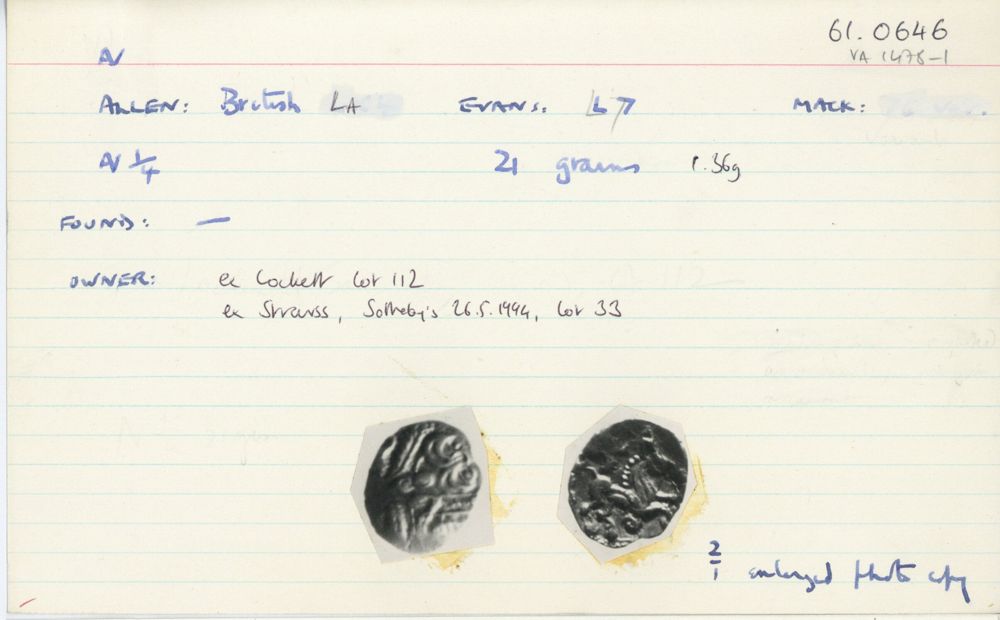 61.0646
AV
VA 1478-1
ALLEN: British LA EVANS: L7 MACK:
AV 1/4 21 grains 1.36g
FOUND: —
OWNER: ex Lockett lot 112
ex Strauss, Sotheby's 26.5.1994, lot 33
2/1 enlarged photo copy